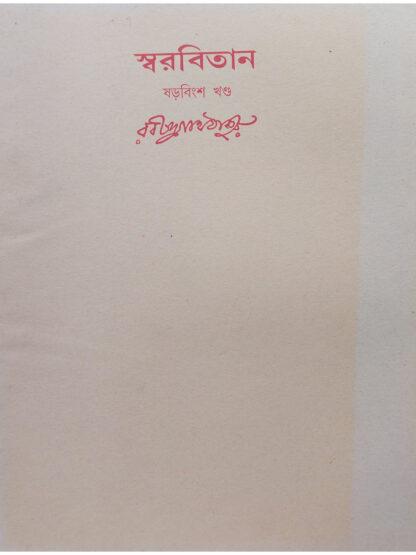 স্বরবিতান
ষড়বিংশ খণ্ড
রবীন্দ্রনাথ ঠাকুর